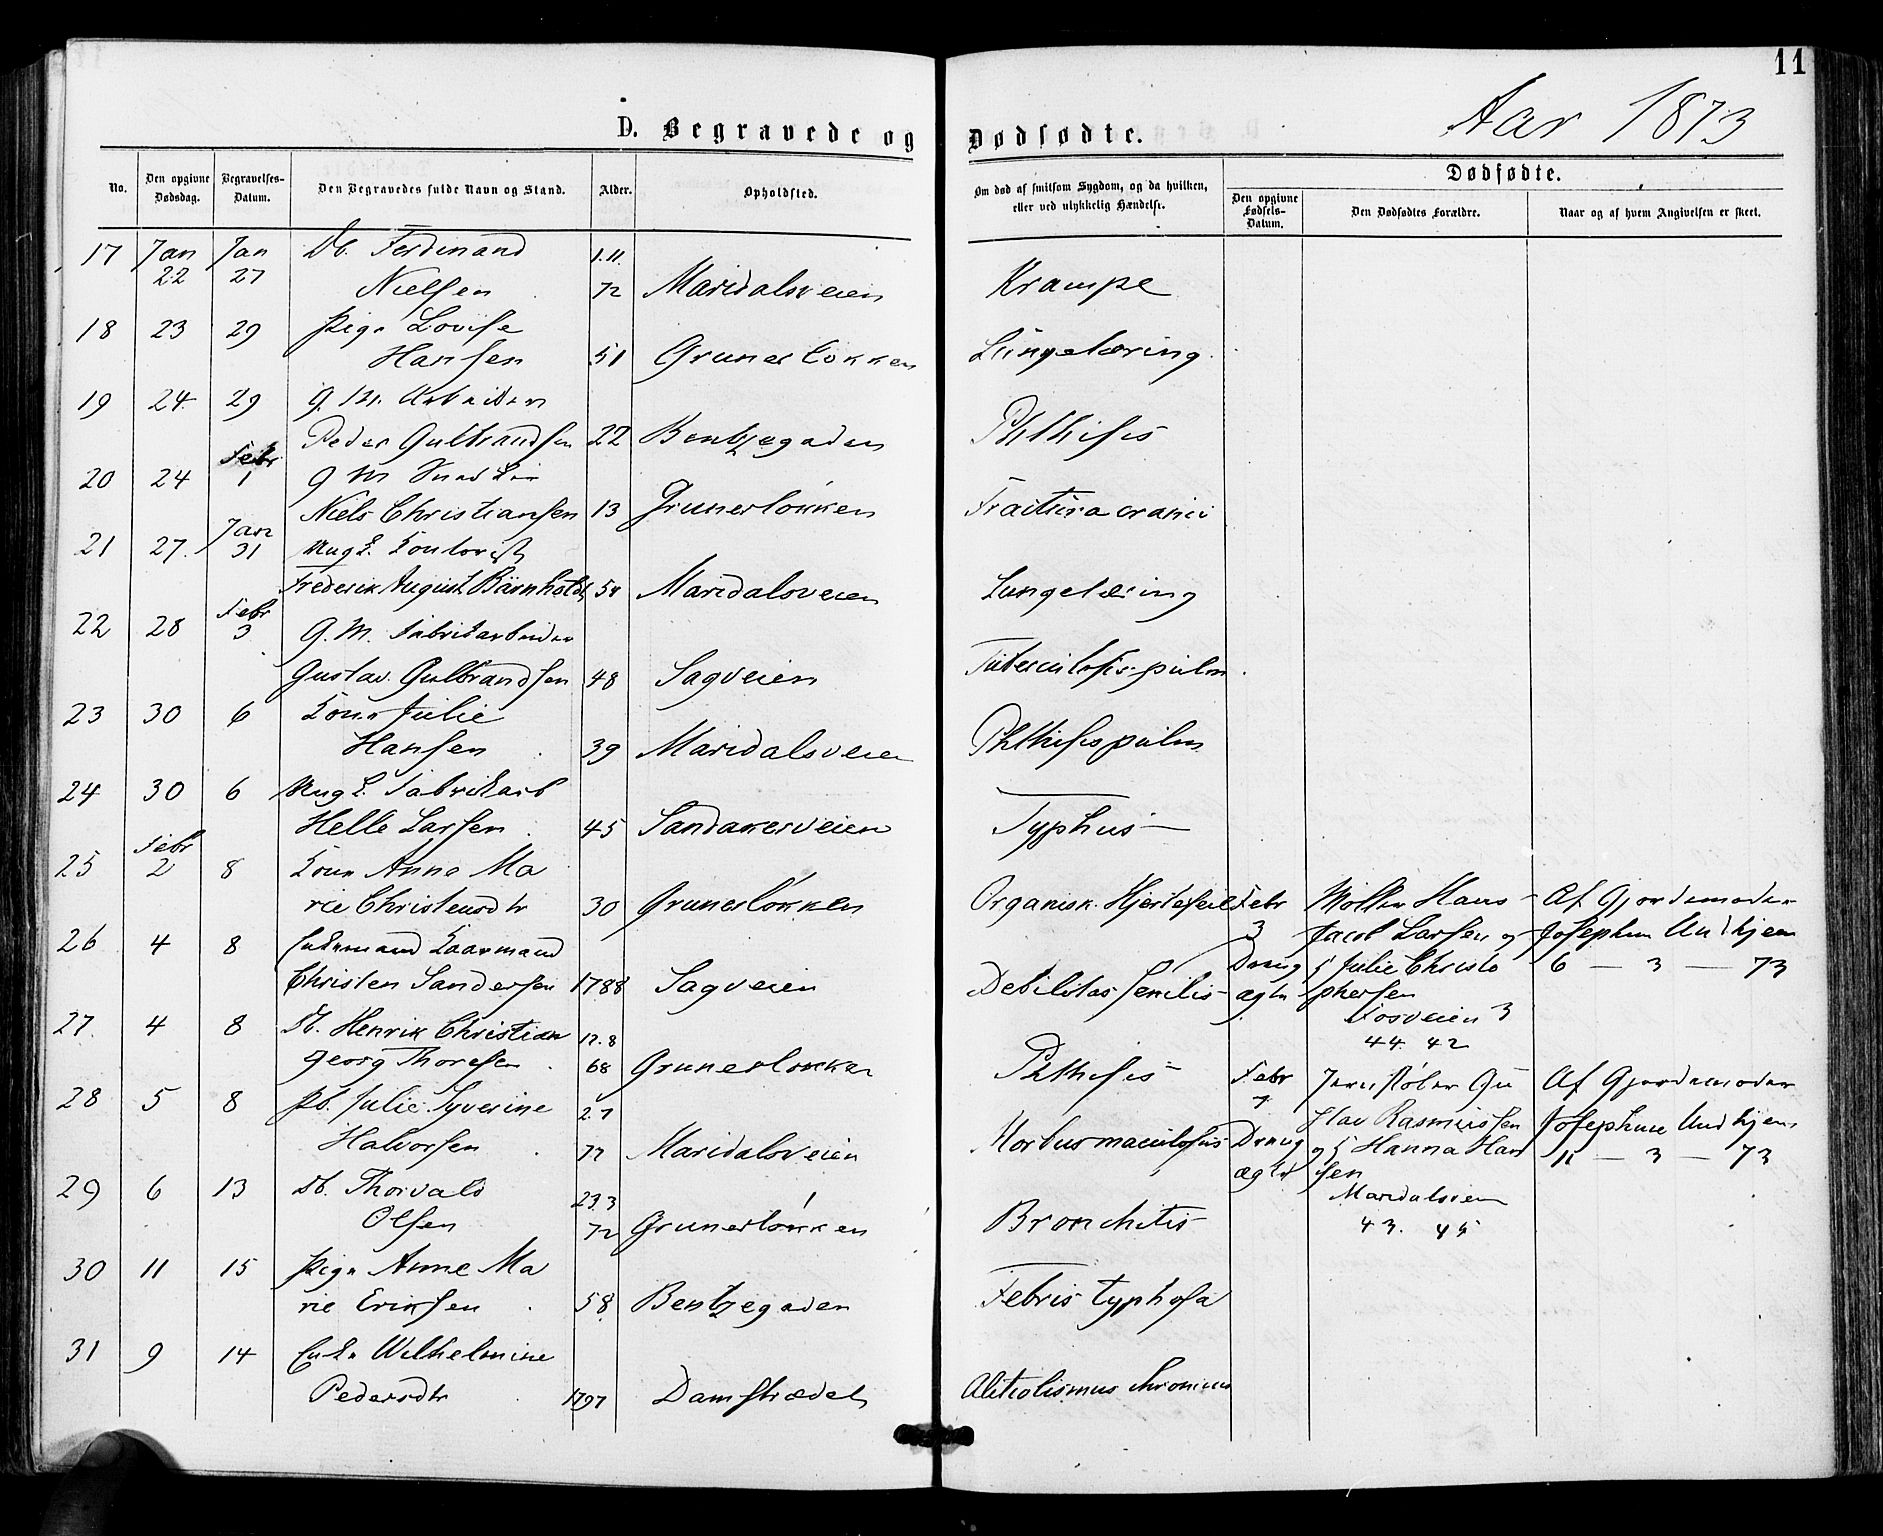 11
Aar 1873
D. Begravede og Dødfødte.
No.
Den opgivne Dødsdag.
Begravelses-Datum.
Den Begravedes fulde Navn og Stand.
Alder.
Opholdsted.
Om død af smitsom Sygdom, og da hvilken, eller ved ulykkelig Hændelse.
Dødfødte.
Den opgivne Fødsels-Datum.
Den Dødfødtes Forældre.
Naar og af hvem Angivelsen er skeet.
17 Jan 22 Jan 27 Db. Ferdinand 1.11.
Nielsen 72 Maridalsveien Krampe
18 23 29 Pige Lovise
Hansen 51 Grunerløkken Lungetæring
19 24 29 G. M. Arbeider
Peder Gulbrandsen 22 Bentzegaden Phthisis
20 24 Febr 1 G M Snedker
Niels Christiansen 13 Grunerløkken Fractura cranii
21 27. Jan 31 Ung K. Kontorist
Frederik August Bärnholdt 54 Maridalsveien Lungetæring
22 28 Febr 3 G. M. Fabrikarbeider
Gustav Gulbrandsen 48 Sagveien Tuberculosis pulm.
23 30 6 Kone Julie
Hansen 39 Maridalsveien Phthisis pulm
24 30 6 Ung K. Fabrikarb
Helle Larsen 45 Sandakerveien Typhus
25 Febr 2 8 Kone Anne Ma
rie Christensdtr 30 Grunerløkken Organisk. Hjertefeil
26 4 8 Enkemand Laarmand
Christen Sandersen 1788 Sagveien Debilitas senilis
27. 4 8 Db. Henrik Christian 12.8
Georg Thoresen 68 Grunerløkken Phthisis
28 5 8 Pb. Julie Syverine 27
Halvorsen 72 Maridalsveien Morbus maculosus
29 6 13 Db. Thorvald 29.3
Olsen 72 Grunerløkken Bronchitis
30 11 15 Pige Anne Ma
rie Eriksen 58 Bentzegaden Febris typhosa
31 9 14 Enke Wilhelmine
Pedersdtr 1797 Damstrædet Alkoholismus chronicus
Febr Møller Hans Af Gjordemoder
3 Jacob Larsen og Josephine Undhjem
Dreng K Julie Christo 6 — 3 — 73
ægte phersen
Fosveien 3
44. 42
Febr Jernstøber Gu Af Gjordemoder
7 stav Rasmussen Josephine Undhjem
Dreng og K Hanna Han 11 — 3 — 73
ægte sen
Maridalsveien
43. 45